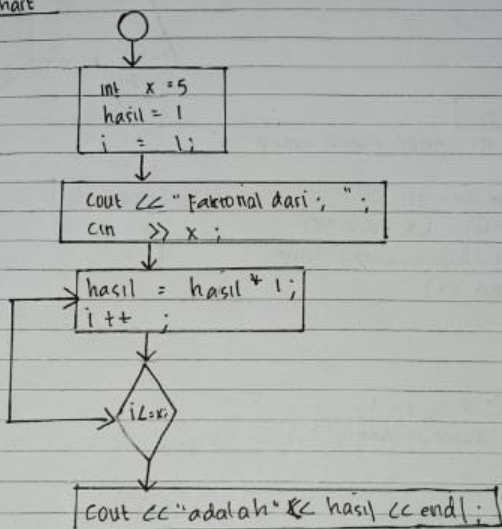 hart
int x = 5
hasil = 1
i = 1;
cout << "Faktorial dari ; ";
cin >> x ;
hasil = hasil * i;
i ++ ;
i <= x;
cout << "adalah" << hasil << endl ;